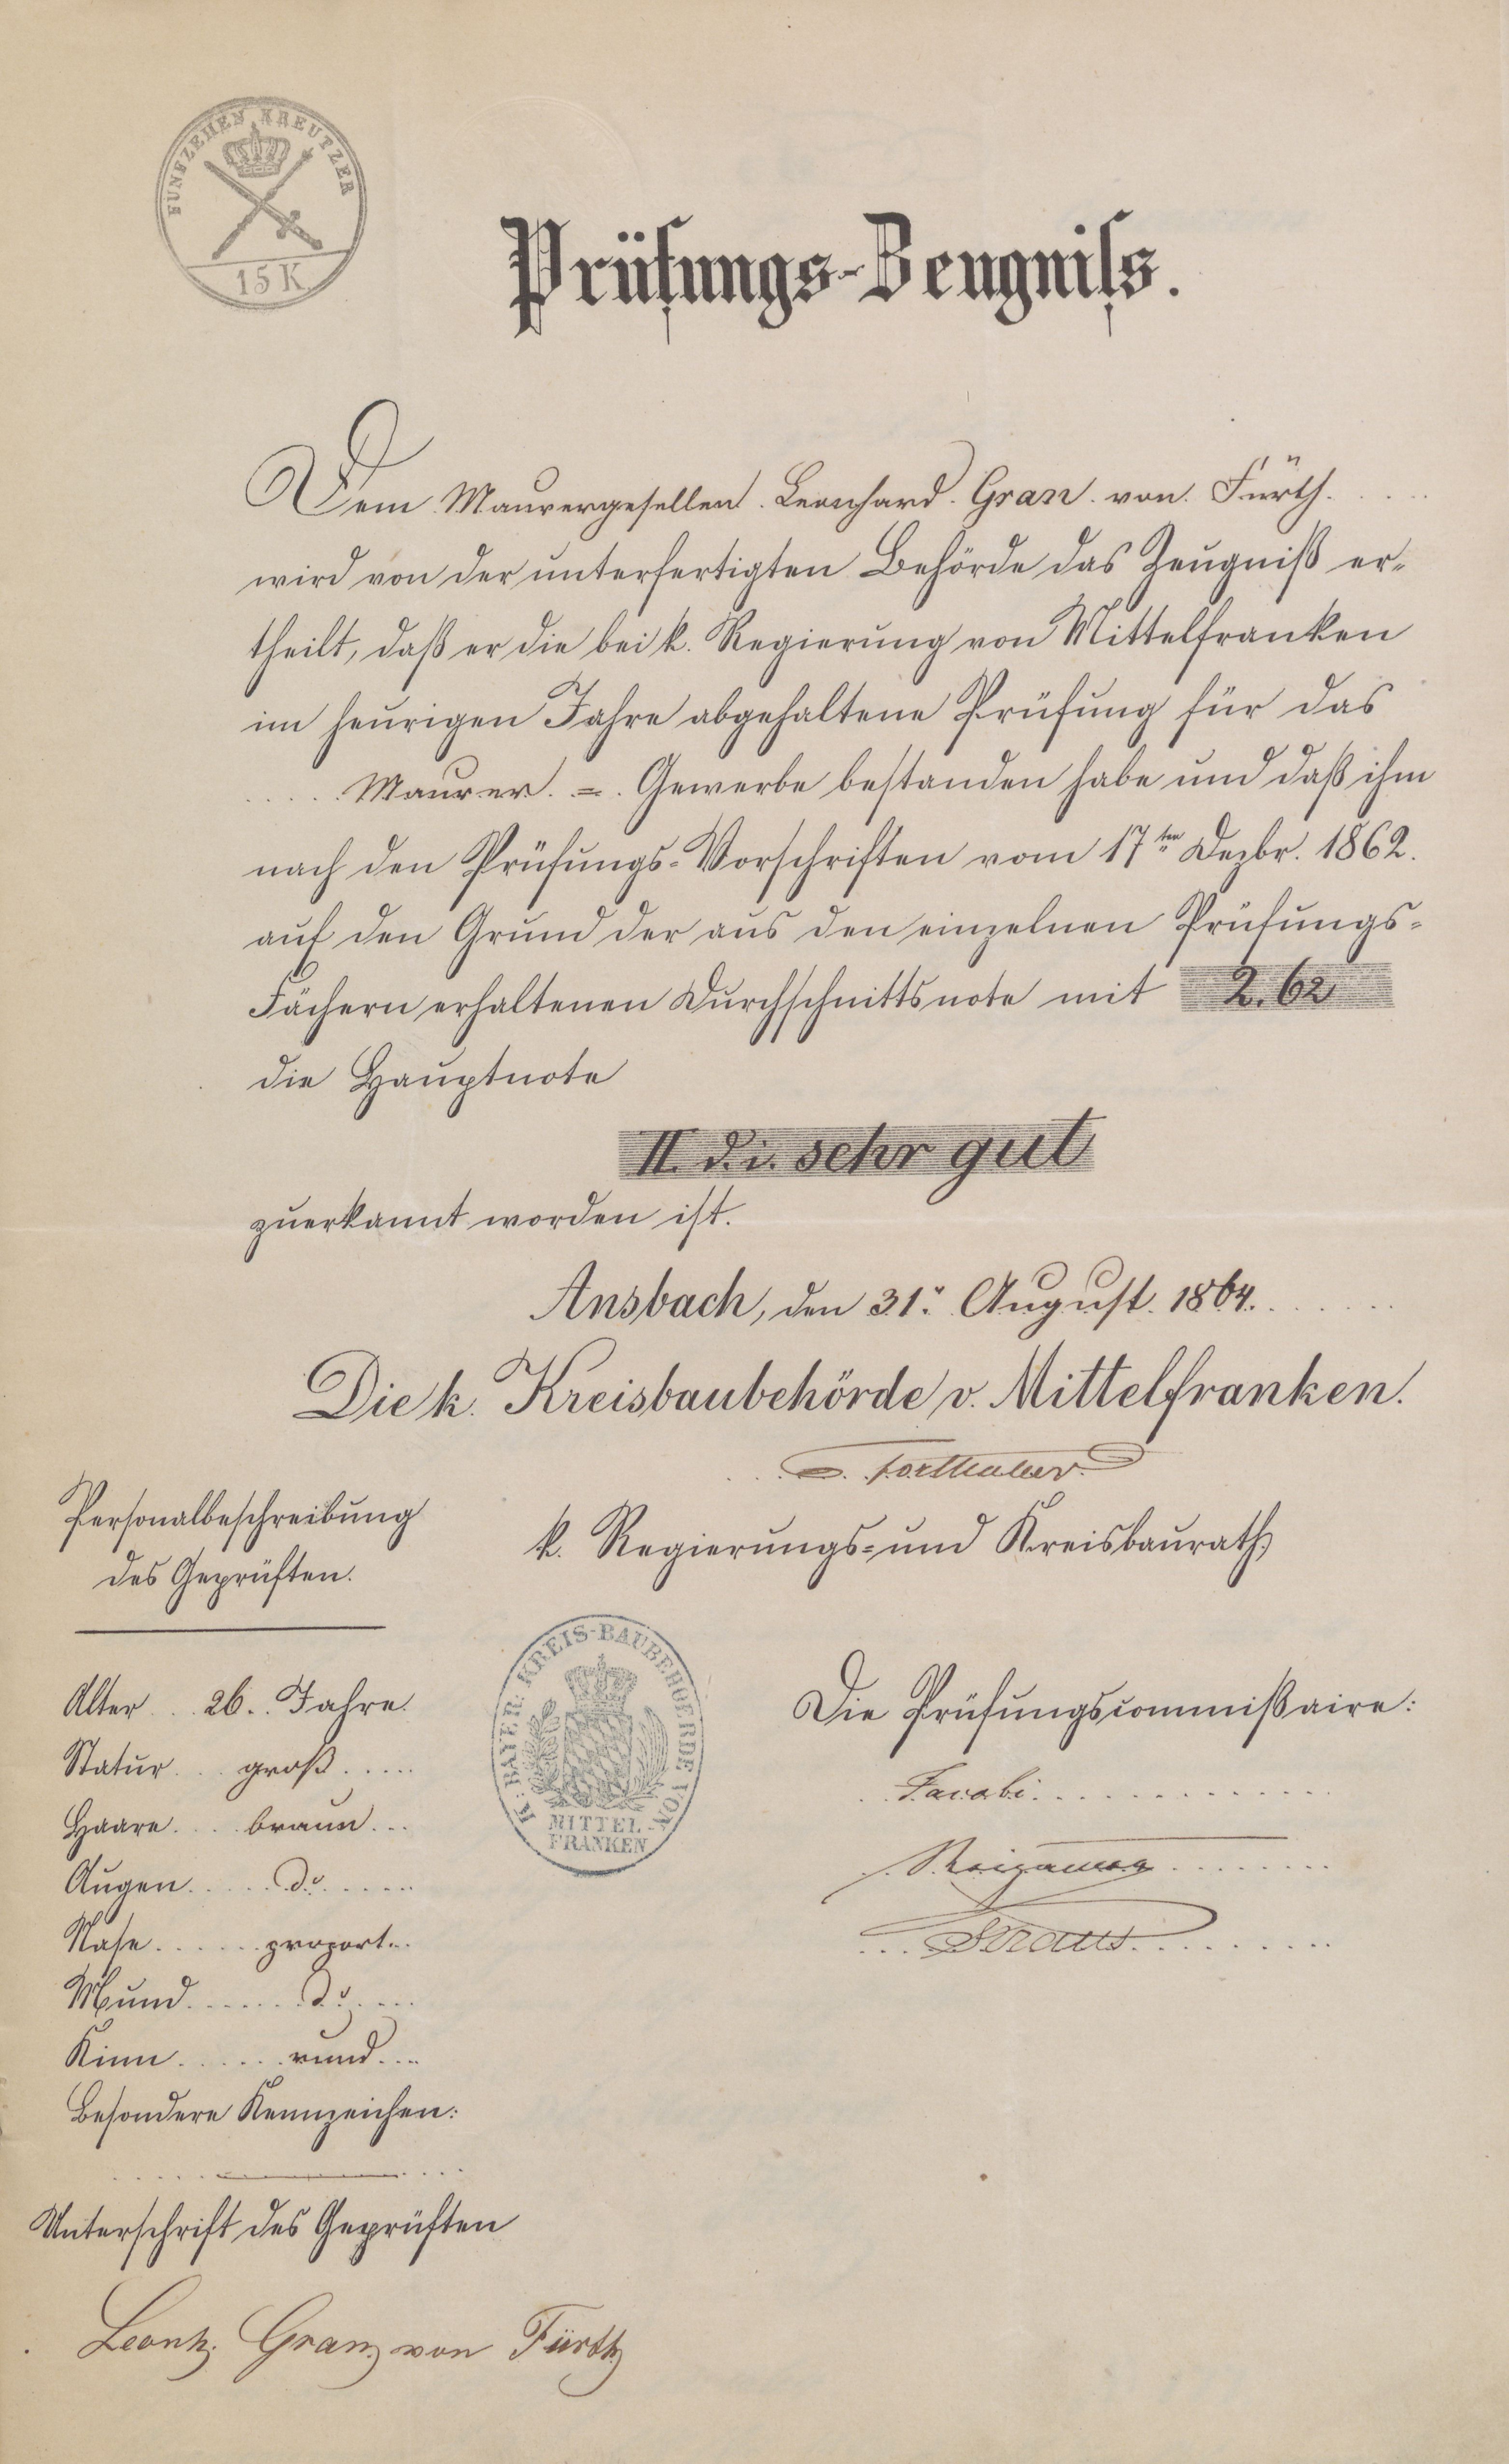 FÜNFZEHEN KREUTZER
15 K
Prüfungs-Zeugniß.
Dem Maurergesellen Leonhard Gran von Fürth
wird von der unterfertigten Behörde das Zeugniß er-
theilt, daß er die bei k. Regierung von Mittelfranken
im heurigen Jahre abgehaltene Prüfung für das
Maurer = Gewerbe bestanden habe und daß ihm
nach den Prüfungs-Vorschriften vom 17ten Dezbr. 1862.
auf den Grund der aus den einzelnen Prüfungs-
Fächern erhaltenen Durchschnittsnote mit 2.62
die Hauptnote
II. d. i. sehr gut
zuerkannt worden ist.
Ansbach, den 31. August 1864.
Die k. Kreisbaubehörde v. Mittelfranken.
k. Regierungs- und Kreisbaurath,
Personalbeschreibung
des Geprüften.
Alter 26 Jahre
Statur groß
Haare braun
Augen do
Nase proport.
Mund do
Kinn rund
Besondere Kennzeichen:
K. BAYER. KREIS-BAUBEHOERDE VON
MITTEL-
FRANKEN
Die Prüfungscommißaire:
Jacobi
Straus
Unterschrift des Geprüften
Leonh. Gran von Fürth